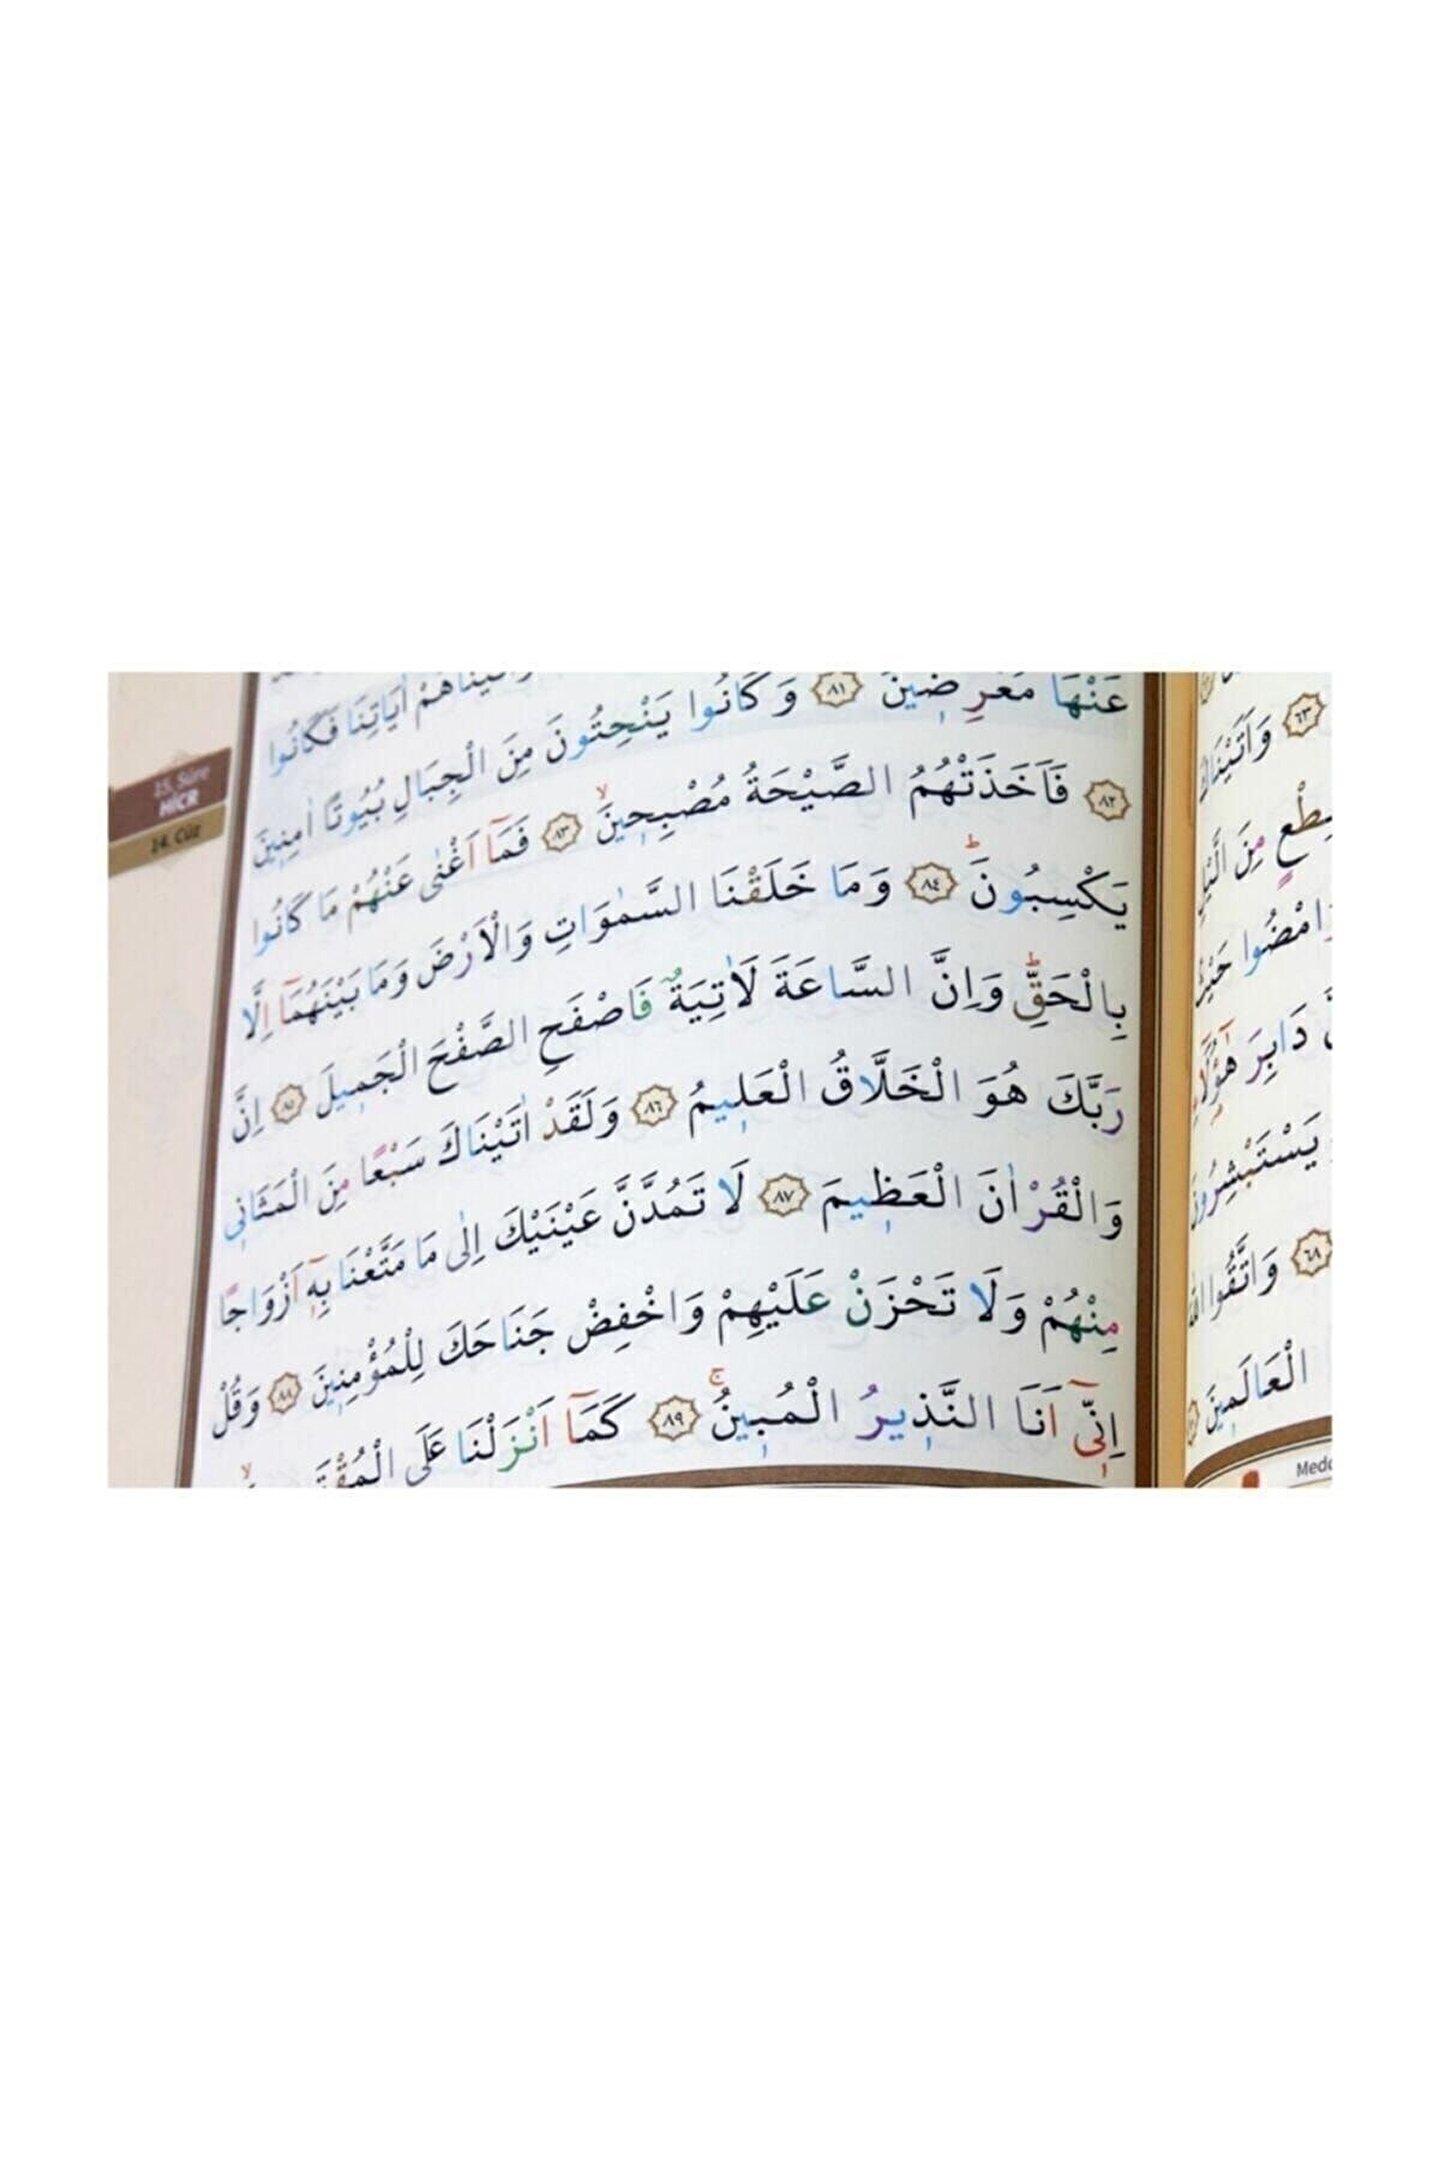 وَاٰتَيْنَاهُمْ اٰيَاتِنَا فَكَانُوا
عَنْهَا مُعْرِضِينَ ﴿٨١﴾ وَكَانُوا يَنْحِتُونَ مِنَ الْجِبَالِ بُيُوتًا اٰمِنِينَ
﴿٨٢﴾ فَاَخَذَتْهُمُ الصَّيْحَةُ مُصْبِحِينَۙ ﴿٨٣﴾ فَمَٓا اَغْنٰى عَنْهُمْ مَا كَانُوا
يَكْسِبُونَۜ ﴿٨٤﴾ وَمَا خَلَقْنَا السَّمٰوَاتِ وَالْاَرْضَ وَمَا بَيْنَهُمَٓا اِلَّا
بِالْحَقِّۜ وَاِنَّ السَّاعَةَ لَاٰتِيَةٌ فَاصْفَحِ الصَّفْحَ الْجَمِيلَ ﴿٨٥﴾ اِنَّ
رَبَّكَ هُوَ الْخَلَّاقُ الْعَلِيمُ ﴿٨٦﴾ وَلَقَدْ اٰتَيْنَاكَ سَبْعًا مِنَ الْمَثَانِي
وَالْقُرْاٰنَ الْعَظِيمَ ﴿٨٧﴾ لَا تَمُدَّنَّ عَيْنَيْكَ اِلٰى مَا مَتَّعْنَا بِهٖٓ اَزْوَاجًا
مِنْهُمْ وَلَا تَحْزَنْ عَلَيْهِمْ وَاخْفِضْ جَنَاحَكَ لِلْمُؤْمِنِينَ ﴿٨٨﴾ وَقُلْ
اِنِّٓي اَنَا النَّذِيرُ الْمُبِينُۚ ﴿٨٩﴾ كَمَٓا اَنْزَلْنَا عَلَى
15. Sûre
HİCR
14. Cüz
﴿٦٣﴾ وَاَتَيْنَاكَ
مِنَ الَّيْلِ
وَامْضُوا حَيْثُ
دَابِرَ هٰٓؤُلَٓاءِ
يَسْتَبْشِرُونَ
﴿٦٨﴾ وَاتَّقُوا اللّٰهَ
الْعَالَمِينَ